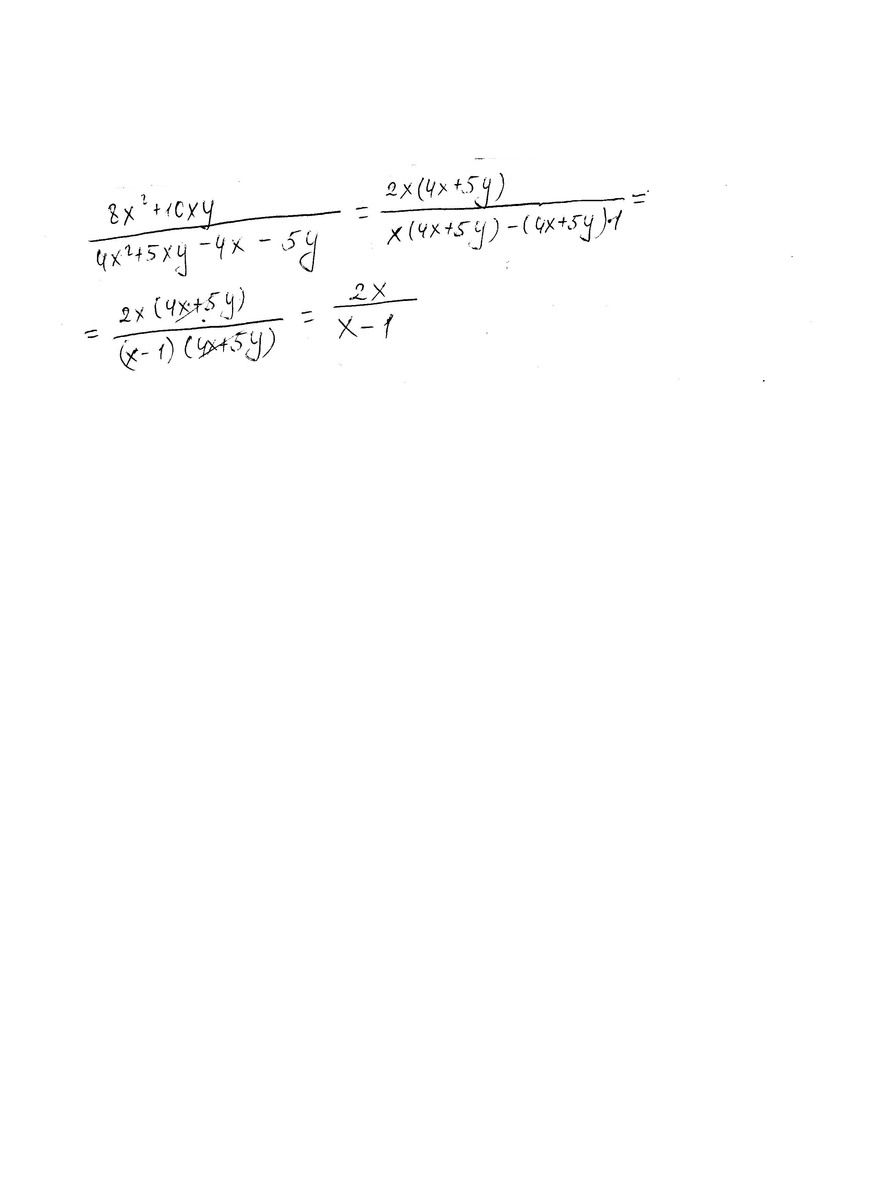 8x²+10xy / 4x²+5xy-4x-5y = 2x(4x+5y) / x(4x+5y)-(4x+5y)·1 =
= 2x(4x+5y) / (x-1)(4x+5y) = 2x / x-1